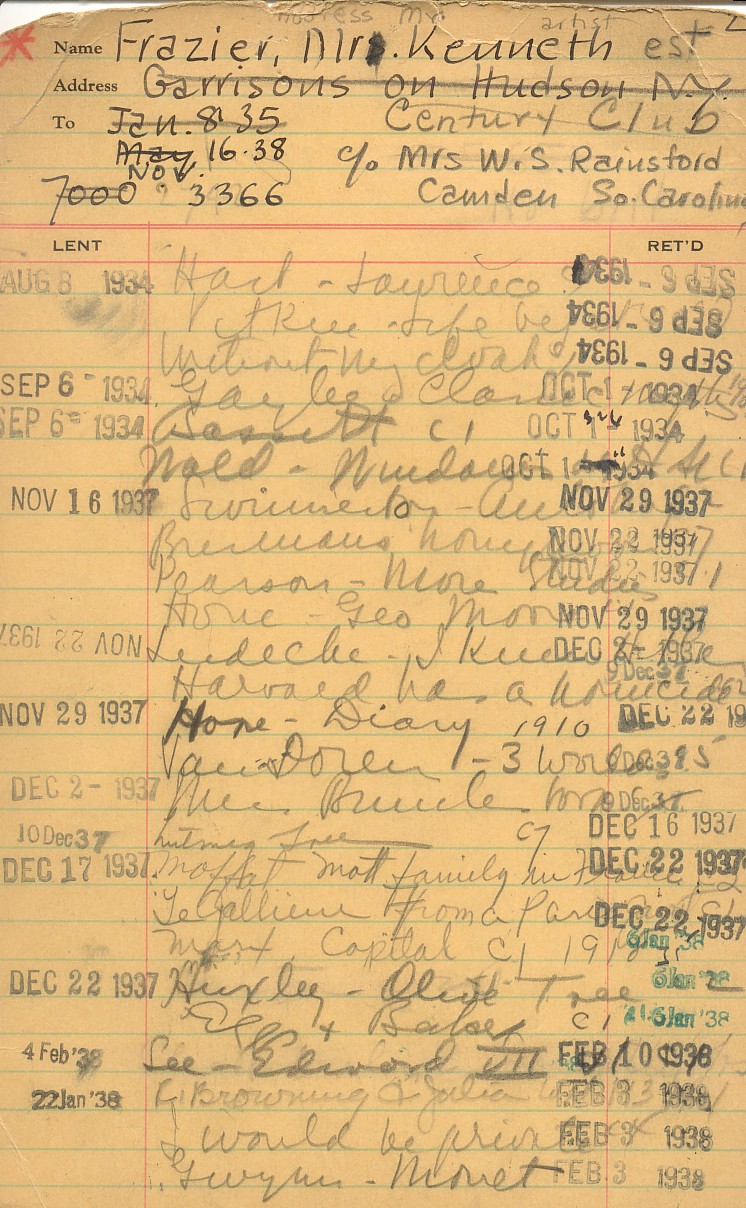 address Mr. artist
Name Frazier, Mrs. Kenneth est
Address Garrisons on Hudson N.Y.
To Jan. 8 35 Century Club
May 16.38 c/o Mrs W.S. Rainsford
Nov.
7000 3366 Camden So. Carolina
LENT RET'D
AUG 8 1934 Hart - Lawrence SEP 6 - 1934
Life SEP 6 - 1934
Without My Cloak SEP 6 - 1934
SEP 6 - 1934 OCT 1 - 1934
SEP 6 - 1934 Bassett c1 OCT 1 - 1934
OCT 1 - 1934
NOV 16 1937 Swinnerton - NOV 29 1937
NOV 22 1937
Pearson - More Studies NOV 22 1937
Hone - Geo Moore NOV 29 1937
NOV 22 1937 Ludecke - I Knew Hitler DEC 2 - 1937
Harvard has a homicide 9 Dec 37
NOV 29 1937 Hone - Diary 1910 DEC 22 19
Van Doren - 3 Worlds Dec 37
DEC 2 - 1937 Miss Buncle Dec 37
10 Dec 37 Nutmeg Tree c7 DEC 16 1937
DEC 17 1937 Moffat Mott family in France DEC 22 1937
Le Gallienne From a Paris DEC 22 1937
Marx Capital c1 6 Jan '38
DEC 22 1937 Huxley - Olive Tree 6 Jan '38
Egg & Baker c1 6 Jan '38
4 Feb '38 Lee - Edward VII FEB 10 1938
22 Jan '38 Browning & Julia FEB 3 1938
I would be private FEB 3 1938
Gwynn - Monet FEB 3 1938